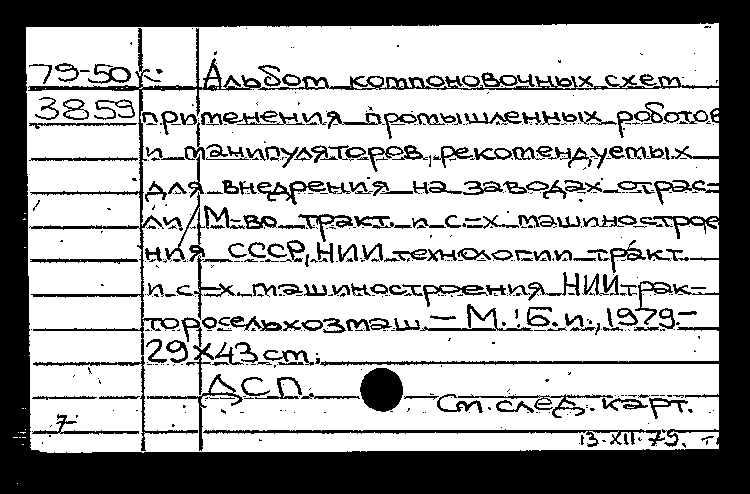 79-50к: Альбом компоновочных схем
3859 применения промышленных роботов
и манипуляторов, рекомендуемых
для внедрения на заводах отрас=
ли/М-во тракт. и с.-х машинострое
ния СССР, НИИ технологии тракт.
и с.-х. машиностроения НИИтрак-
торосельхозмаш. – М.: Б.и., 1979.-
29х43 см.
ДСП.
См. след. карт.
7-
13.XII.79.